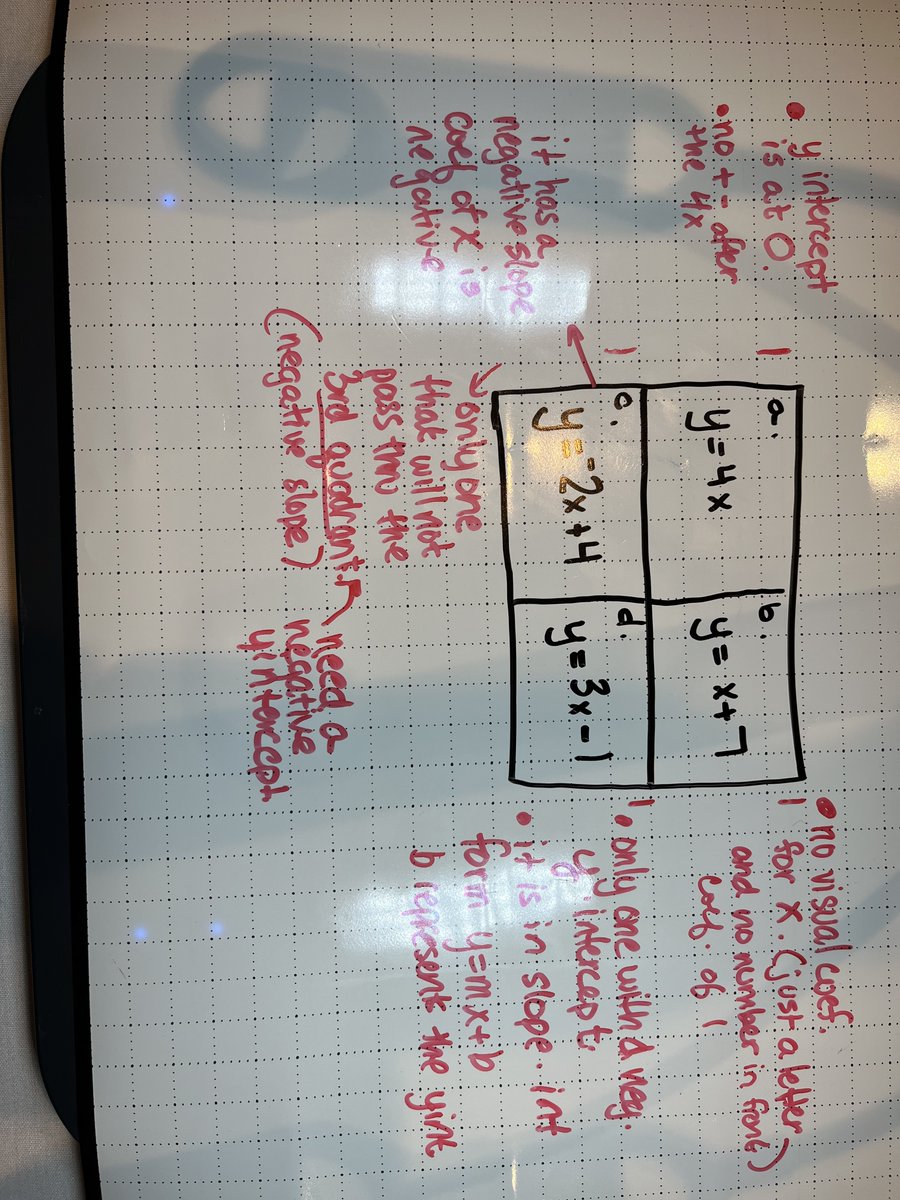 • y intercept
is at 0.
• no + - after
the 4x
a.
y = 4x
b.
y = x + 7
• no visual coef.
for x. (just a letter
and no number in front)
coef. of 1
it has a
negative slope
coef of x is
negative
c.
y = -2x + 4
d.
y = 3x - 1
• only one with a neg.
y intercept.
• it is in slope. int
form y = mx + b
b represents the yint
only one
that will not
pass thru the
3rd quadrant.
(negative slope)
need a
negative
yintercept